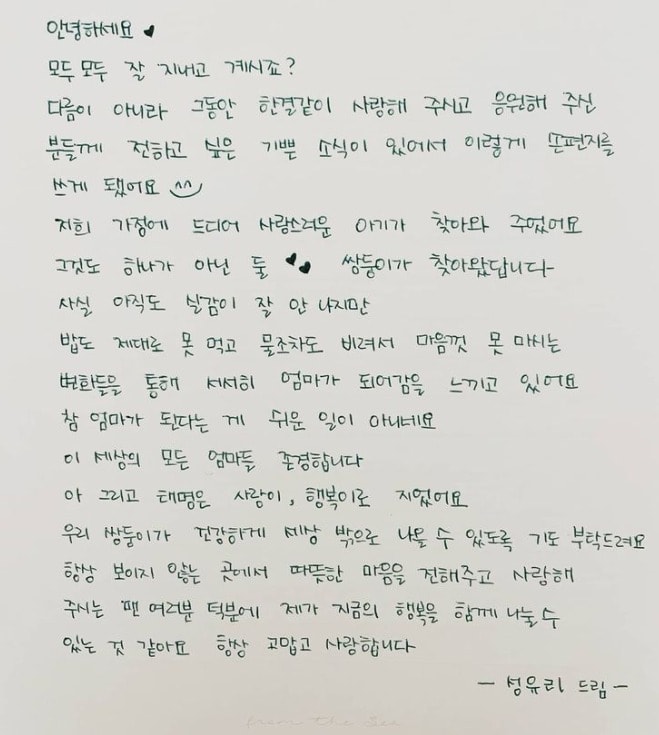 안녕하세요 ♥
모두모두 잘 지내고 계시죠?
다름이 아니라 그동안 한결같이 사랑해 주시고 응원해 주신
분들께 전하고 싶은 기쁜 소식이 있어서 이렇게 손편지를
쓰게 됐어요 ^^
저희 가정에 드디어 사랑스러운 아기가 찾아와 주었어요
그것도 하나가 아닌 둘 ♥♥ 쌍둥이가 찾아왔답니다-
사실 아직도 실감이 잘 안 나지만
밥도 제대로 못 먹고 물조차도 비려서 마음껏 못 마시는
변화들을 통해 서서히 엄마가 되어감을 느끼고 있어요
참 엄마가 된다는 게 쉬운 일이 아니네요
이 세상의 모든 엄마들 존경합니다
아 그리고 태명은 사랑이, 행복이로 지었어요
우리 쌍둥이가 건강하게 세상 밖으로 나올 수 있도록 기도 부탁드려요
항상 보이지 않는 곳에서 따뜻한 마음을 전해주고 사랑해
주시는 팬 여러분 덕분에 제가 지금의 행복을 함께 나눌 수
있는 것 같아요 항상 고맙고 사랑합니다
- 성유리 드림 -
from the